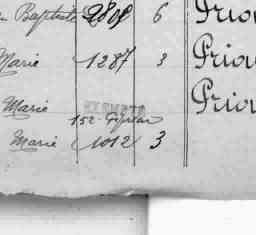 Baptiste 2808 6 Prio
Marie 1287 3 Prio
Marie EXEMPTÉ Prio
152
Marie 1012 3